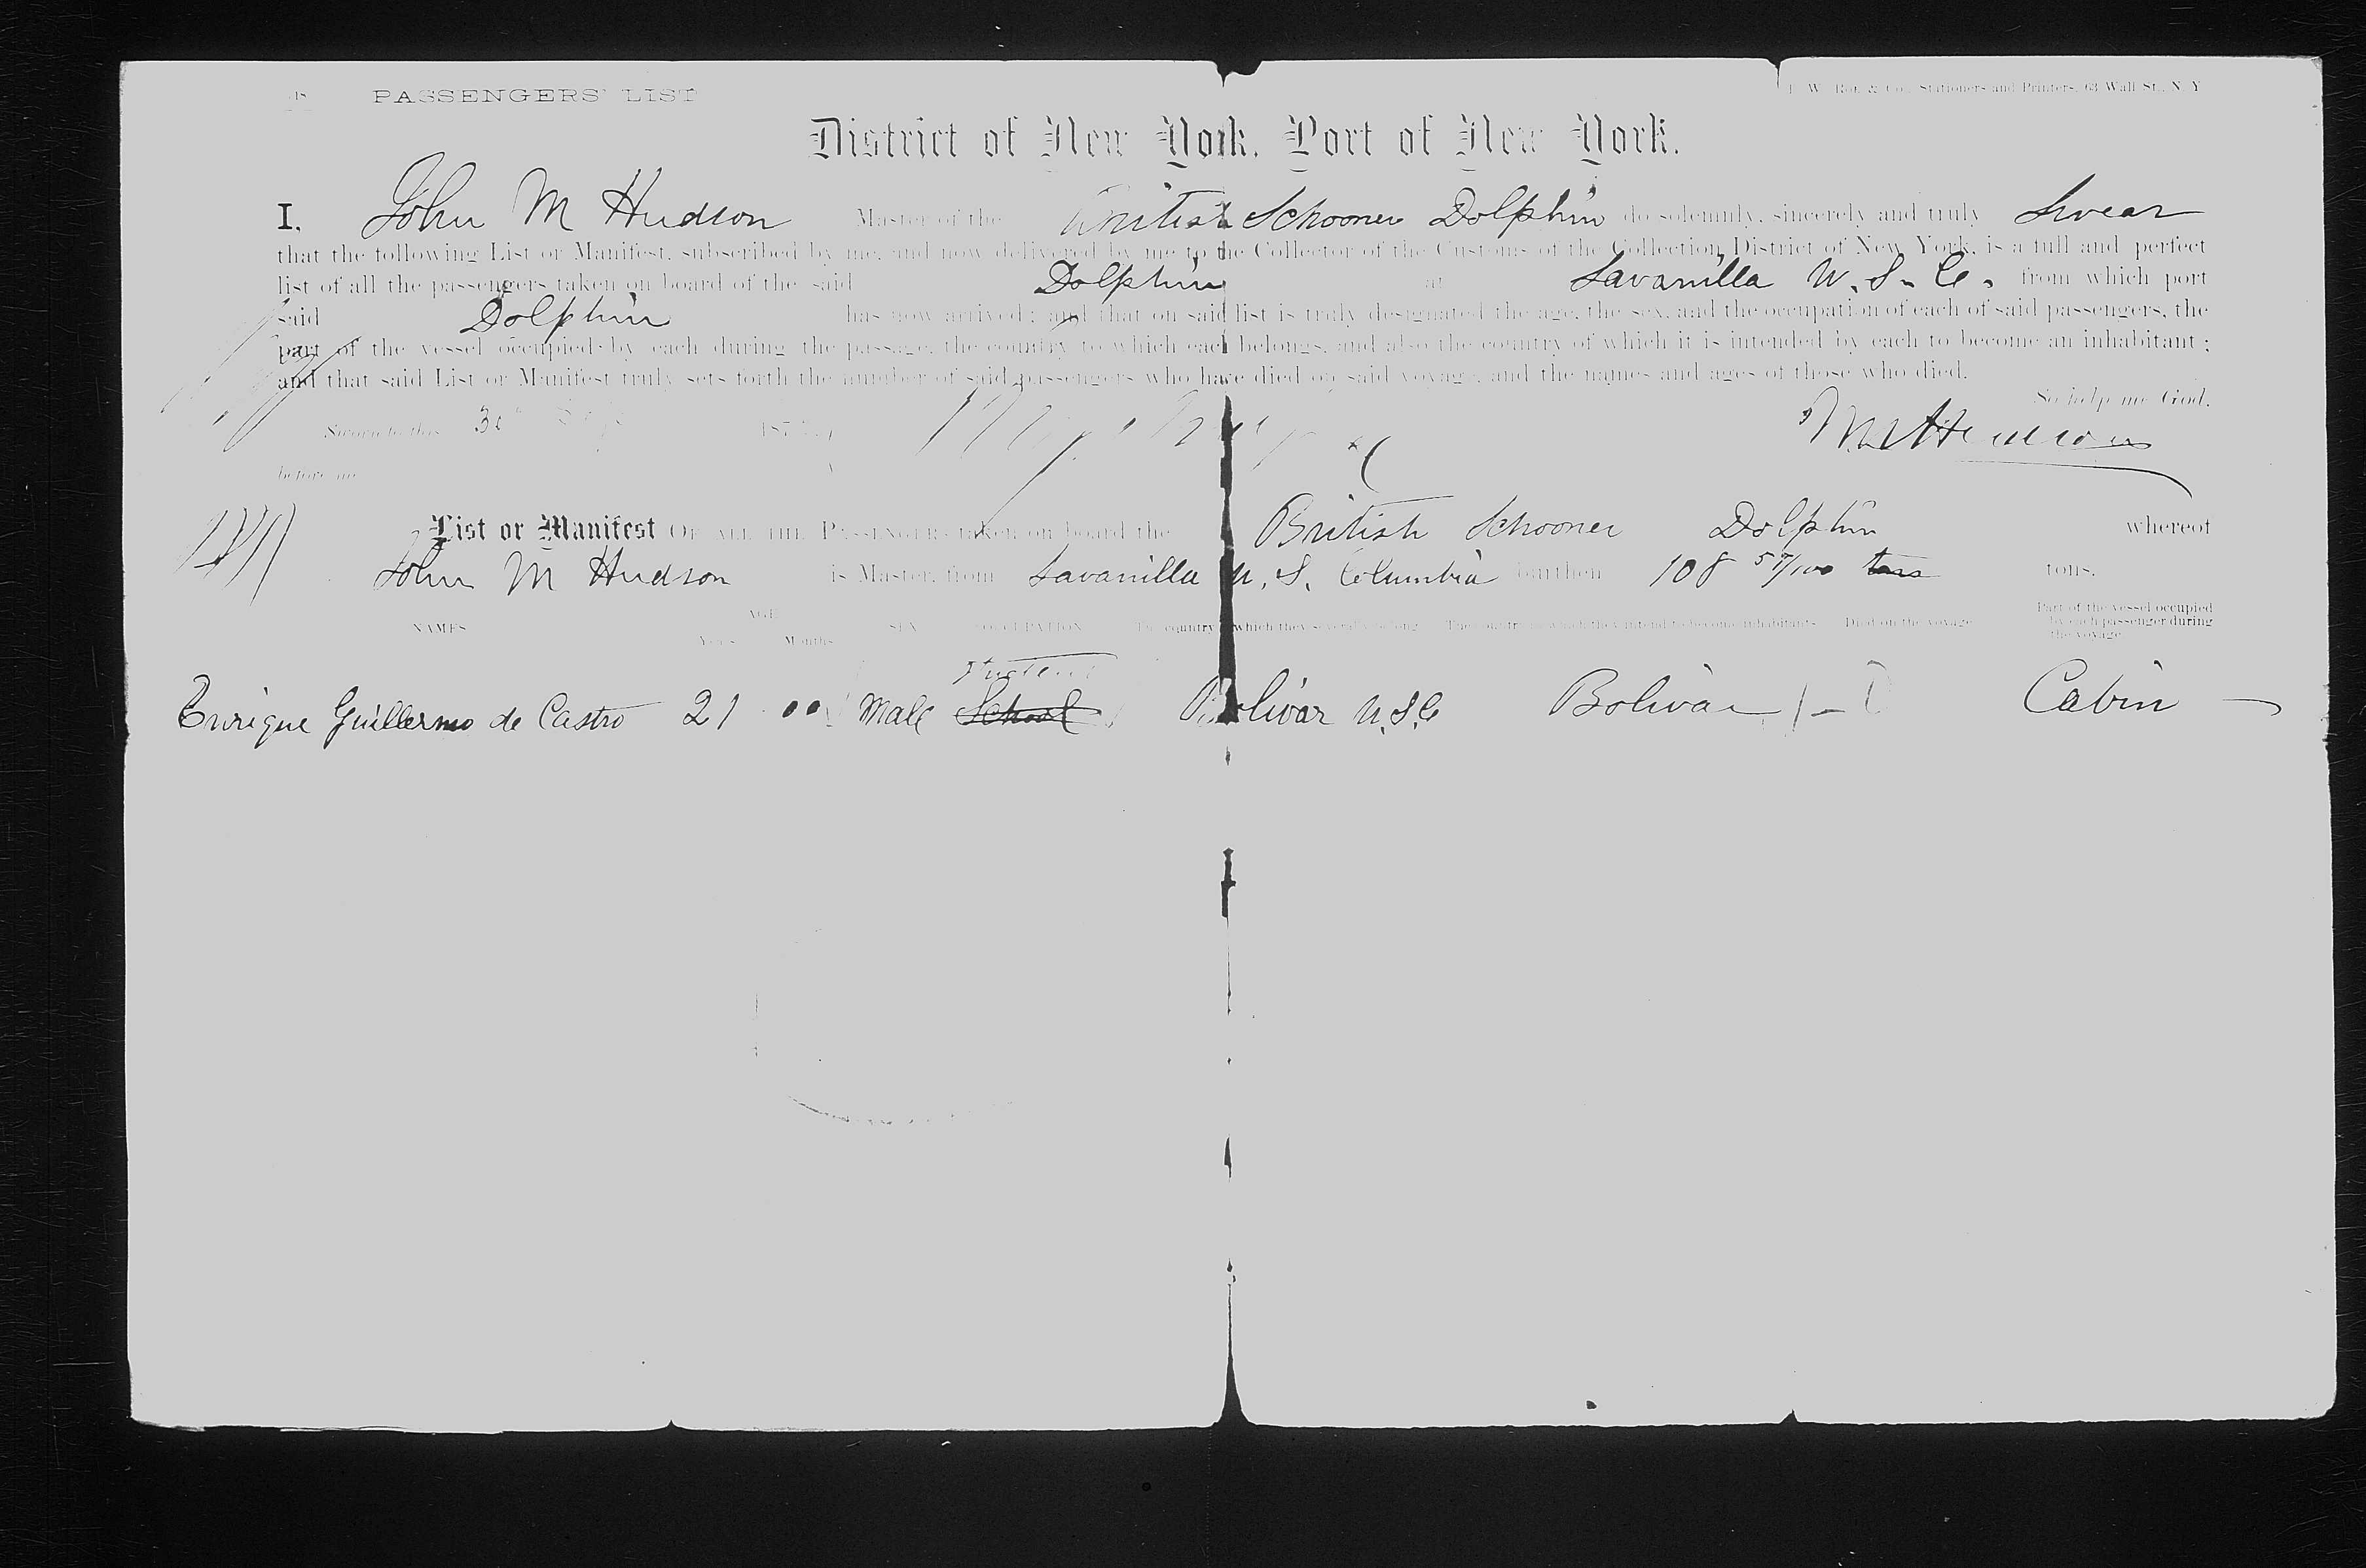 PASSENGERS' LIST
Stationers and Printers, 63 Wall St., N. Y
District of New York, Port of New York.
I, John M Hudson Master of the British Schooner Dolphin do solemnly, sincerely and truly Swear
that the following List or Manifest, subscribed by me, and now delivered by me to the Collector of the Customs of the Collection District of New York, is a full and perfect
list of all the passengers taken on board of the said Dolphin at Savanilla U. S. C. from which port
said Dolphin has now arrived; and that on said list is truly designated the age, the sex, and the occupation of each of said passengers, the
part of the vessel occupied by each during the passage, the country to which each belongs, and also the country of which it is intended by each to become an inhabitant;
and that said List or Manifest truly sets forth the number of said passengers who have died on said voyage, and the names and ages of those who died.
So help me God.
Sworn to this 30 187
before me
List or Manifest OF ALL THE PASSENGERS taken on board the British Schooner Dolphin whereof
John M Hudson is Master, from Savanilla U. S. Columbia burthen 108 57/100 tons tons.
NAMES AGE Years Months SEX OCCUPATION The country to which they severally belong The country in which they intend to become inhabitants Died on the voyage Part of the vessel occupied by each passenger during the voyage
Student
Enrique Guillermo de Castro 21 00 Male School Bolivar U.S.C Bolivar Cabin